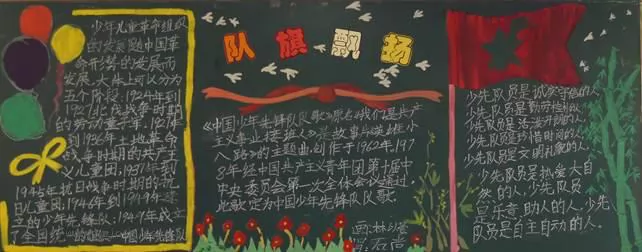 队旗飘扬
少年儿童革命组织
的发展随中国革
命形势的发展而
发展,大体上可以分为
五个阶段,1924年到
1927北伐战争时期
的劳动童子军,1927年
到1936年土地革命
战争时期的共产主
义儿童团,1937年到
1945年抗日战争时期的抗
日儿童团,1946年到1949年建
立的少年先锋队,1949年成立
了全国统一的组织——中国少年先锋队
《中国少年先锋队队歌》原名《我们是共产
主义事业接班人》是故事片《英雄小
八路》的主题曲,创作于1962年,197
8年经中国共产主义青年团第十届中
央委员会第一次全体会议通过,
此歌定为中国少年先锋队队歌
画:林
学:石
少先队员是诚实守信的人
少先队员是勤劳
少先队员是活泼开朗的人
少先队员是珍惜时间的人
少先队员是文明礼貌的人
少先队员是热爱大自
然的人,少先队员
是乐意助人的人,少先
队员是自主自动的人